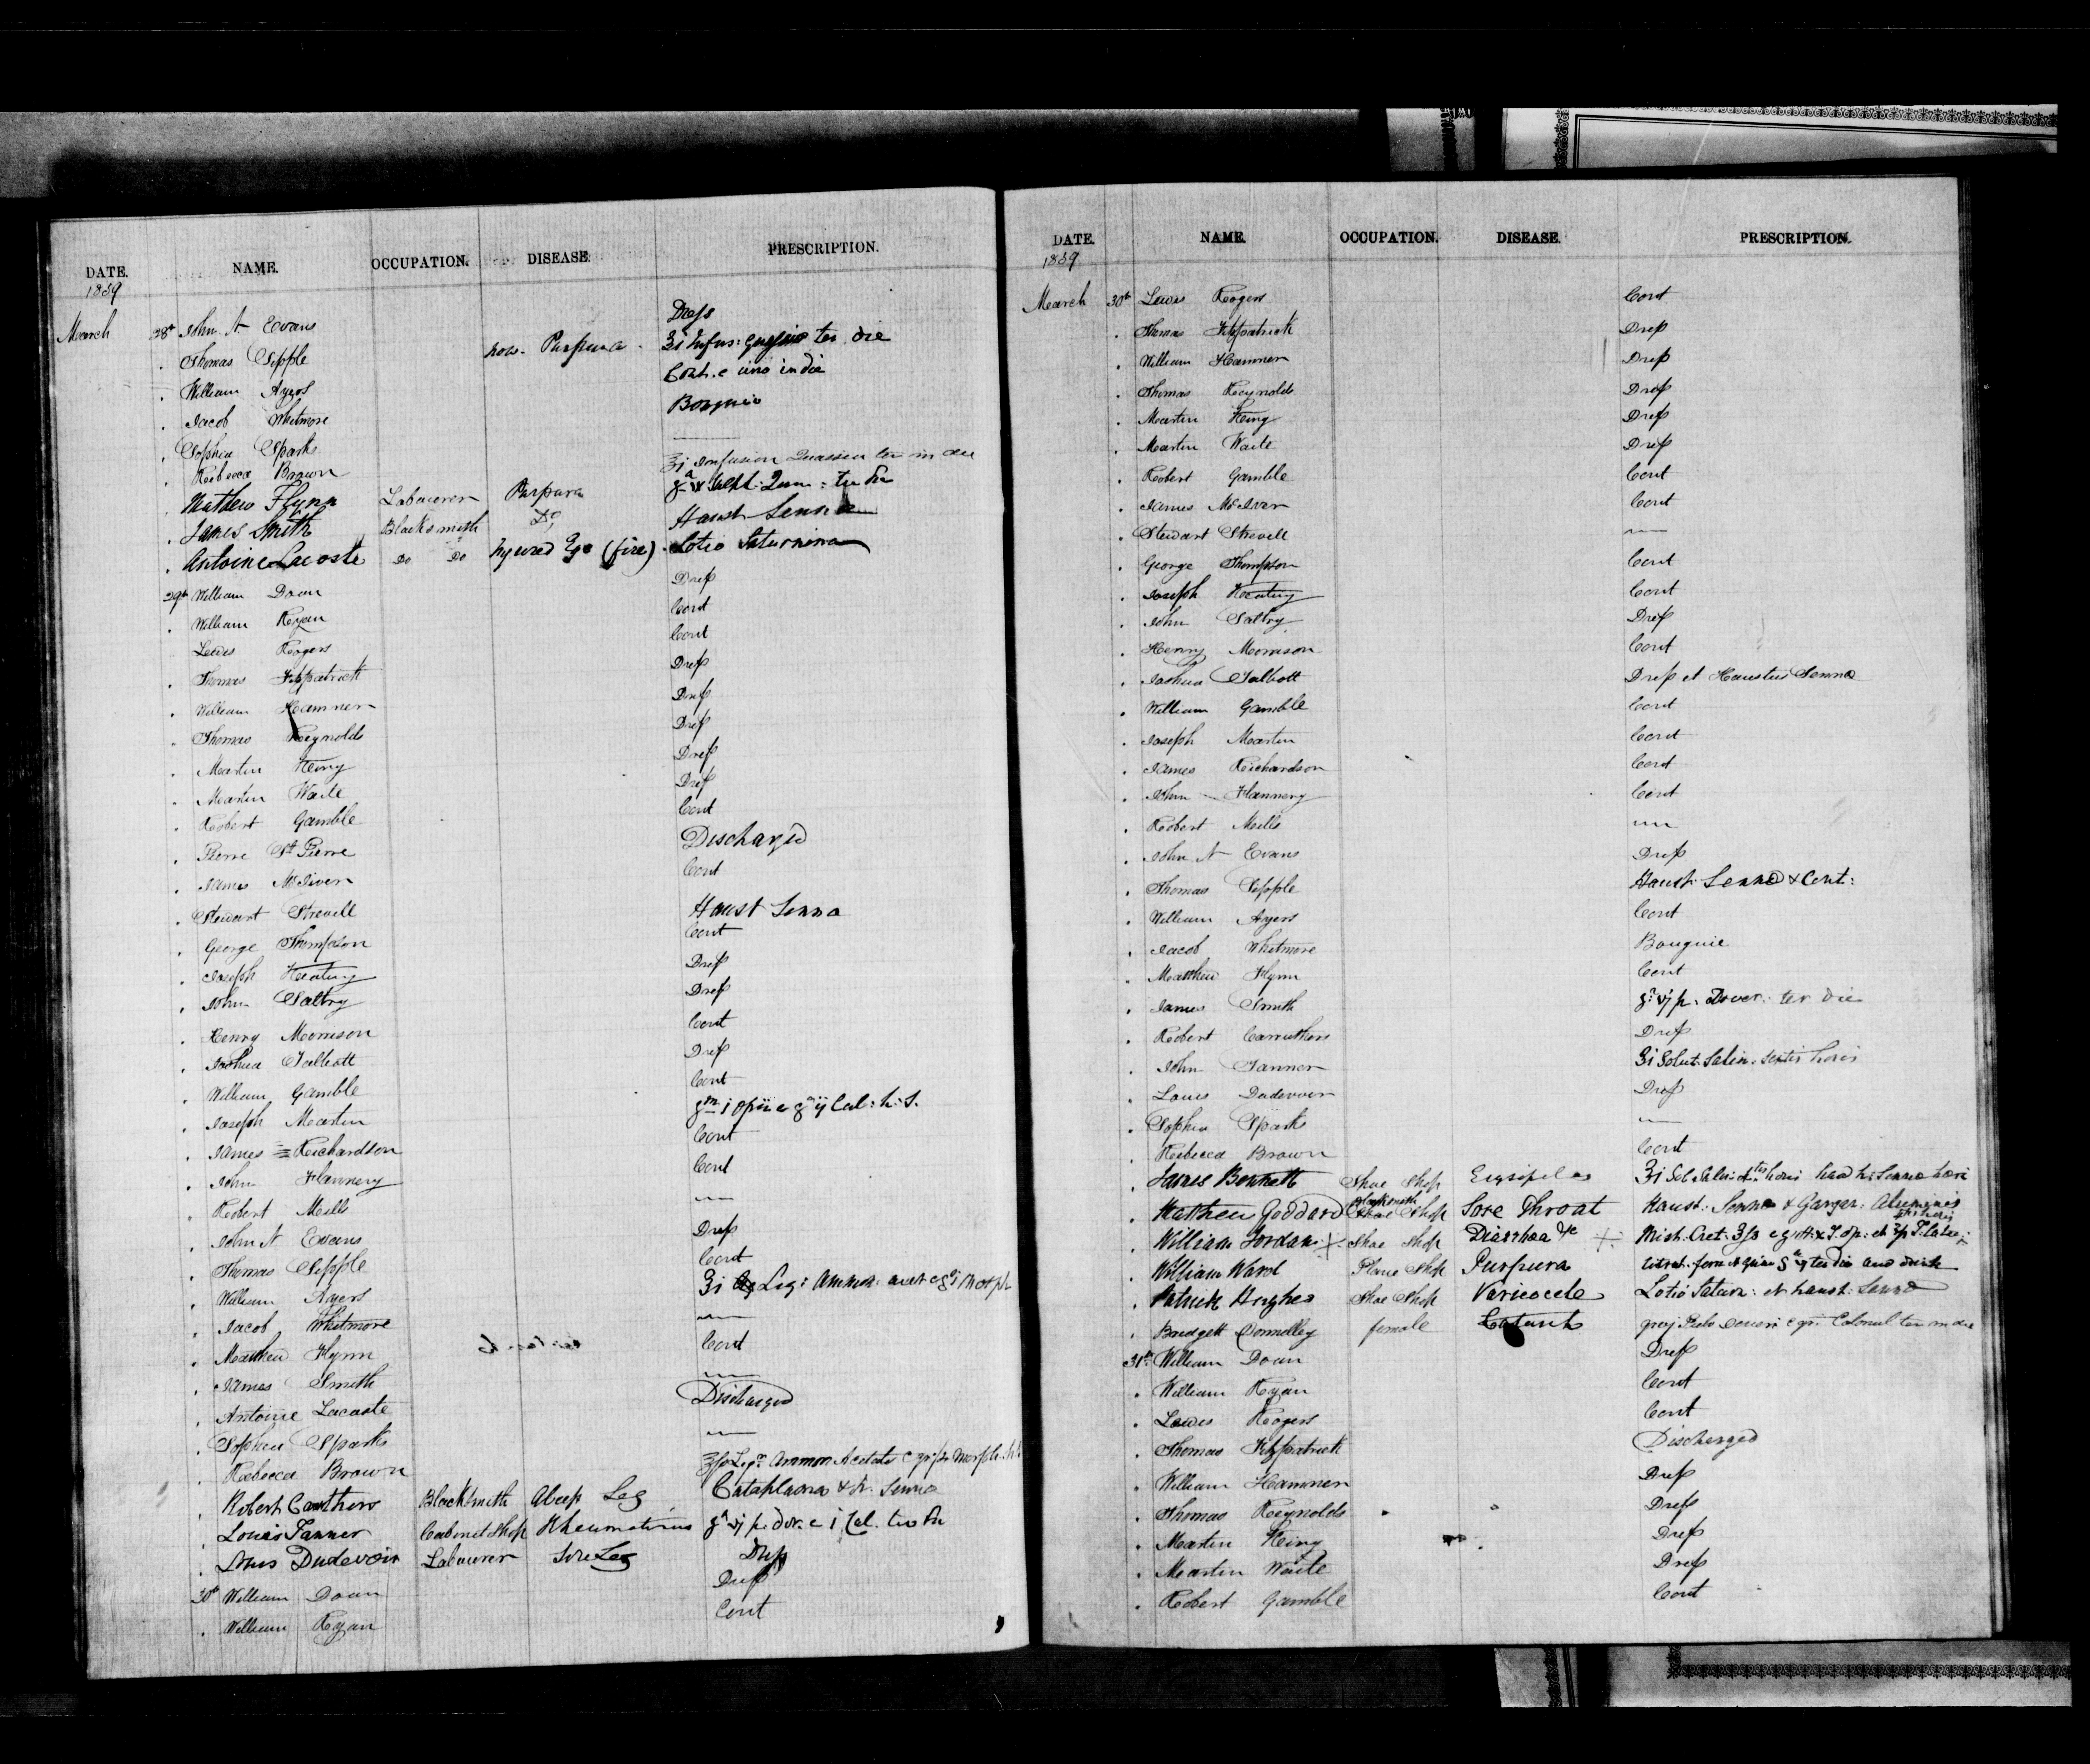 DATE. NAME. OCCUPATION. DISEASE. PRESCRIPTION.
1839
March 28th John A Evans Dress
. Thomas Sipple now. Purpura. ʒi Infus: ter die
. William Ayers Cont. c uno in die
. Jacob Whitmore Bougie
. Sophia Sparks —
. Rebecca Brown ʒi Infusion Quassia ter in die
. Mathew Flynn Labourer Purpura Sulph: Quin: ter die
. James Smith Blacksmith Do Haust Senna
. Antoine Lacoste Do Do Injured Eye (fire). Lotio Saturnina
29th William Doan Dress
. William Ryan Cont
Lewis Rogers Cont
. Thomas Fitzpatrick Dress
. William Hamner Dress
. Thomas Reynolds Dress
. Martin King Dress
. Martin Waite Dress
. Robert Gamble Cont
. Pierre St Pierre Discharged
. James McIver Cont
. Stewart Strevell Haust Senna
. George Thompson Cont
. Joseph Keating Dress
. John Saltry Dress
. Henry Morrison Cont
. Joshua Talbott Dress
. William Gamble Cont
. Joseph Martin grn i Opii c gr ij Cal: h.s.
. James Richardson Cont
. John Flannery Cont
. Robert Mills —
. John A Evans Dress
. Thomas Sipple Cont
. William Ayers ʒi Liq: Ammon: acet c gr i Morph
. Jacob Whitmore —
. Matthew Flynn Cont
. James Smith —
. Antoine Lacoste Discharged
. Sophia Sparks —
. Rebecca Brown Liqr Ammon Acetate c Morph. h.s
. Robert Cauthers Blacksmith Abcess Leg Cataplasma & h. Senna
. Louis Tanner Cabinet Shop Rheumatismus gr vj p. Dov. c i Cal. ter die
. Louis Dudevoir Labourer Sore Leg Dress
30th William Doan Dress
. William Ryan Cont
DATE. NAME. OCCUPATION. DISEASE. PRESCRIPTION.
1839
March 30th Lewis Rogers Cont
. Thomas Fitzpatrick Dress
. William Hamner Dress
. Thomas Reynolds Dress
. Martin King Dress
. Martin Waite Dress
. Robert Gamble Cont
. James McIver Cont
. Stewart Strevell —
. George Thompson Cont
. Joseph Keating Cont
. John Saltry Dress
. Henry Morrison Cont
. Joshua Talbott Dress et Haustus Senna
. William Gamble Cont
. Joseph Martin Cont
. James Richardson Cont
. John Flannery Cont
. Robert Mills —
. John A Evans Dress
. Thomas Sipple Haust. Senna & Cont:
. William Ayers Cont
. Jacob Whitmore Bouguie
. Matthew Flynn Cont
. James Smith gr vj p. Dover: ter die
. Robert Carruthers Dress
. John Tanner ʒi Solut: Salin. sextis horis
. Louis Dudevoir Dress
. Sophia Sparks —
. Rebecca Brown Cont
. James Bennett Shoe Shop Erysipelas ʒi Sol. Salin: horis Senna
. Matthew Goddard Blacksmith Shop Sore Throat Haust: Senna & Gargar: Aluminis
. William Jordan + Shoe Shop Diarrhoea &c + Mist. Cret:
. William Ward Plane Shop Purpura ter die and drink
. Patrick Hughes Shoe Shop Varicocele Lotio Saturn: et haust: Senna
. Bridgett Donnolley female Catarrh Pulv Doveri c gr i Calomel ter in die
31st William Doan Dress
. William Ryan Cont
. Lewis Rogers Cont
. Thomas Fitzpatrick Discharged
. William Hamner Dress
. Thomas Reynolds Dress
. Martin King Dress
. Martin Waite Dress
. Robert Gamble Cont